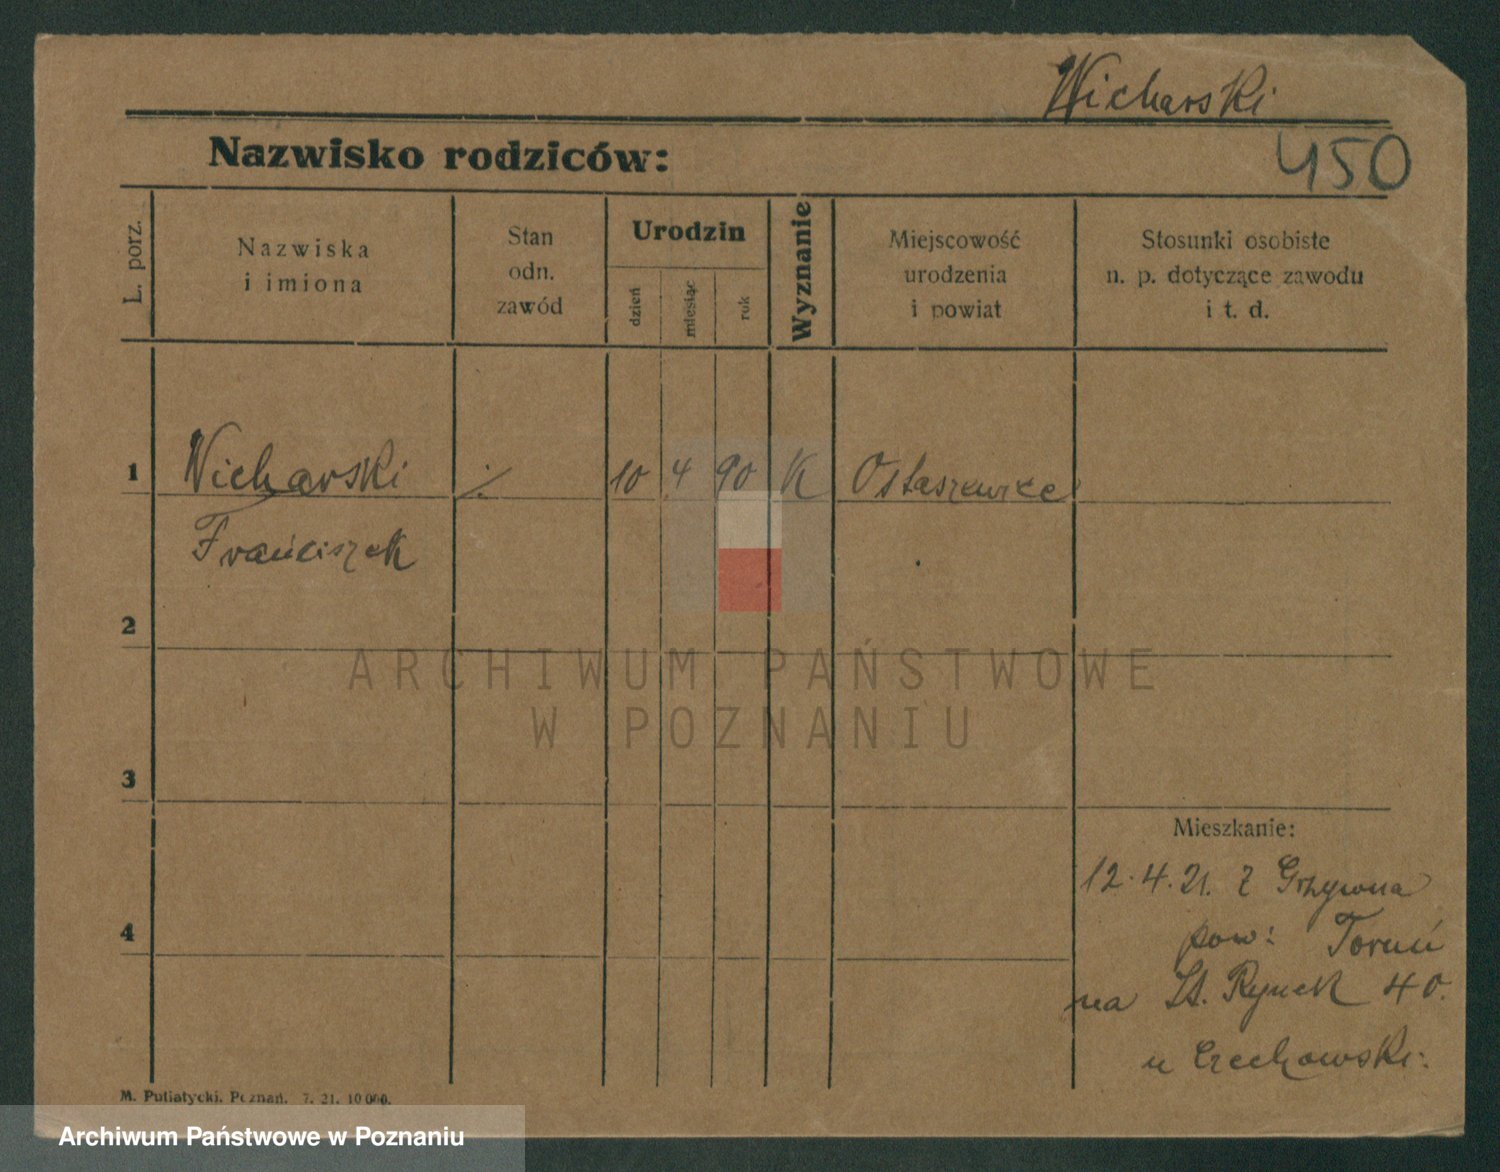 Wicharski
450
Nazwisko rodziców:
L. porz.
Nazwiska
i imiona
Stan
odn.
zawód
Urodzin
dzień
miesiąc
rok
Wyznanie
Miejscowość
urodzenia
i powiat
Stosunki osobiste
n. p. dotyczące zawodu
i t. d.
1 Wicharski ./. 10 4 90 K Ostaszewice
Franciszek
2
ARCHIWUM PAŃSTWOWE
W POZNANIU
3
Mieszkanie:
12.4.21. z Grzywna
4
pow: Toruń
na St. Rynek 40.
u Czechowski.
M. Putiatycki, Poznań. 7. 21. 10 000.
Archiwum Państwowe w Poznaniu